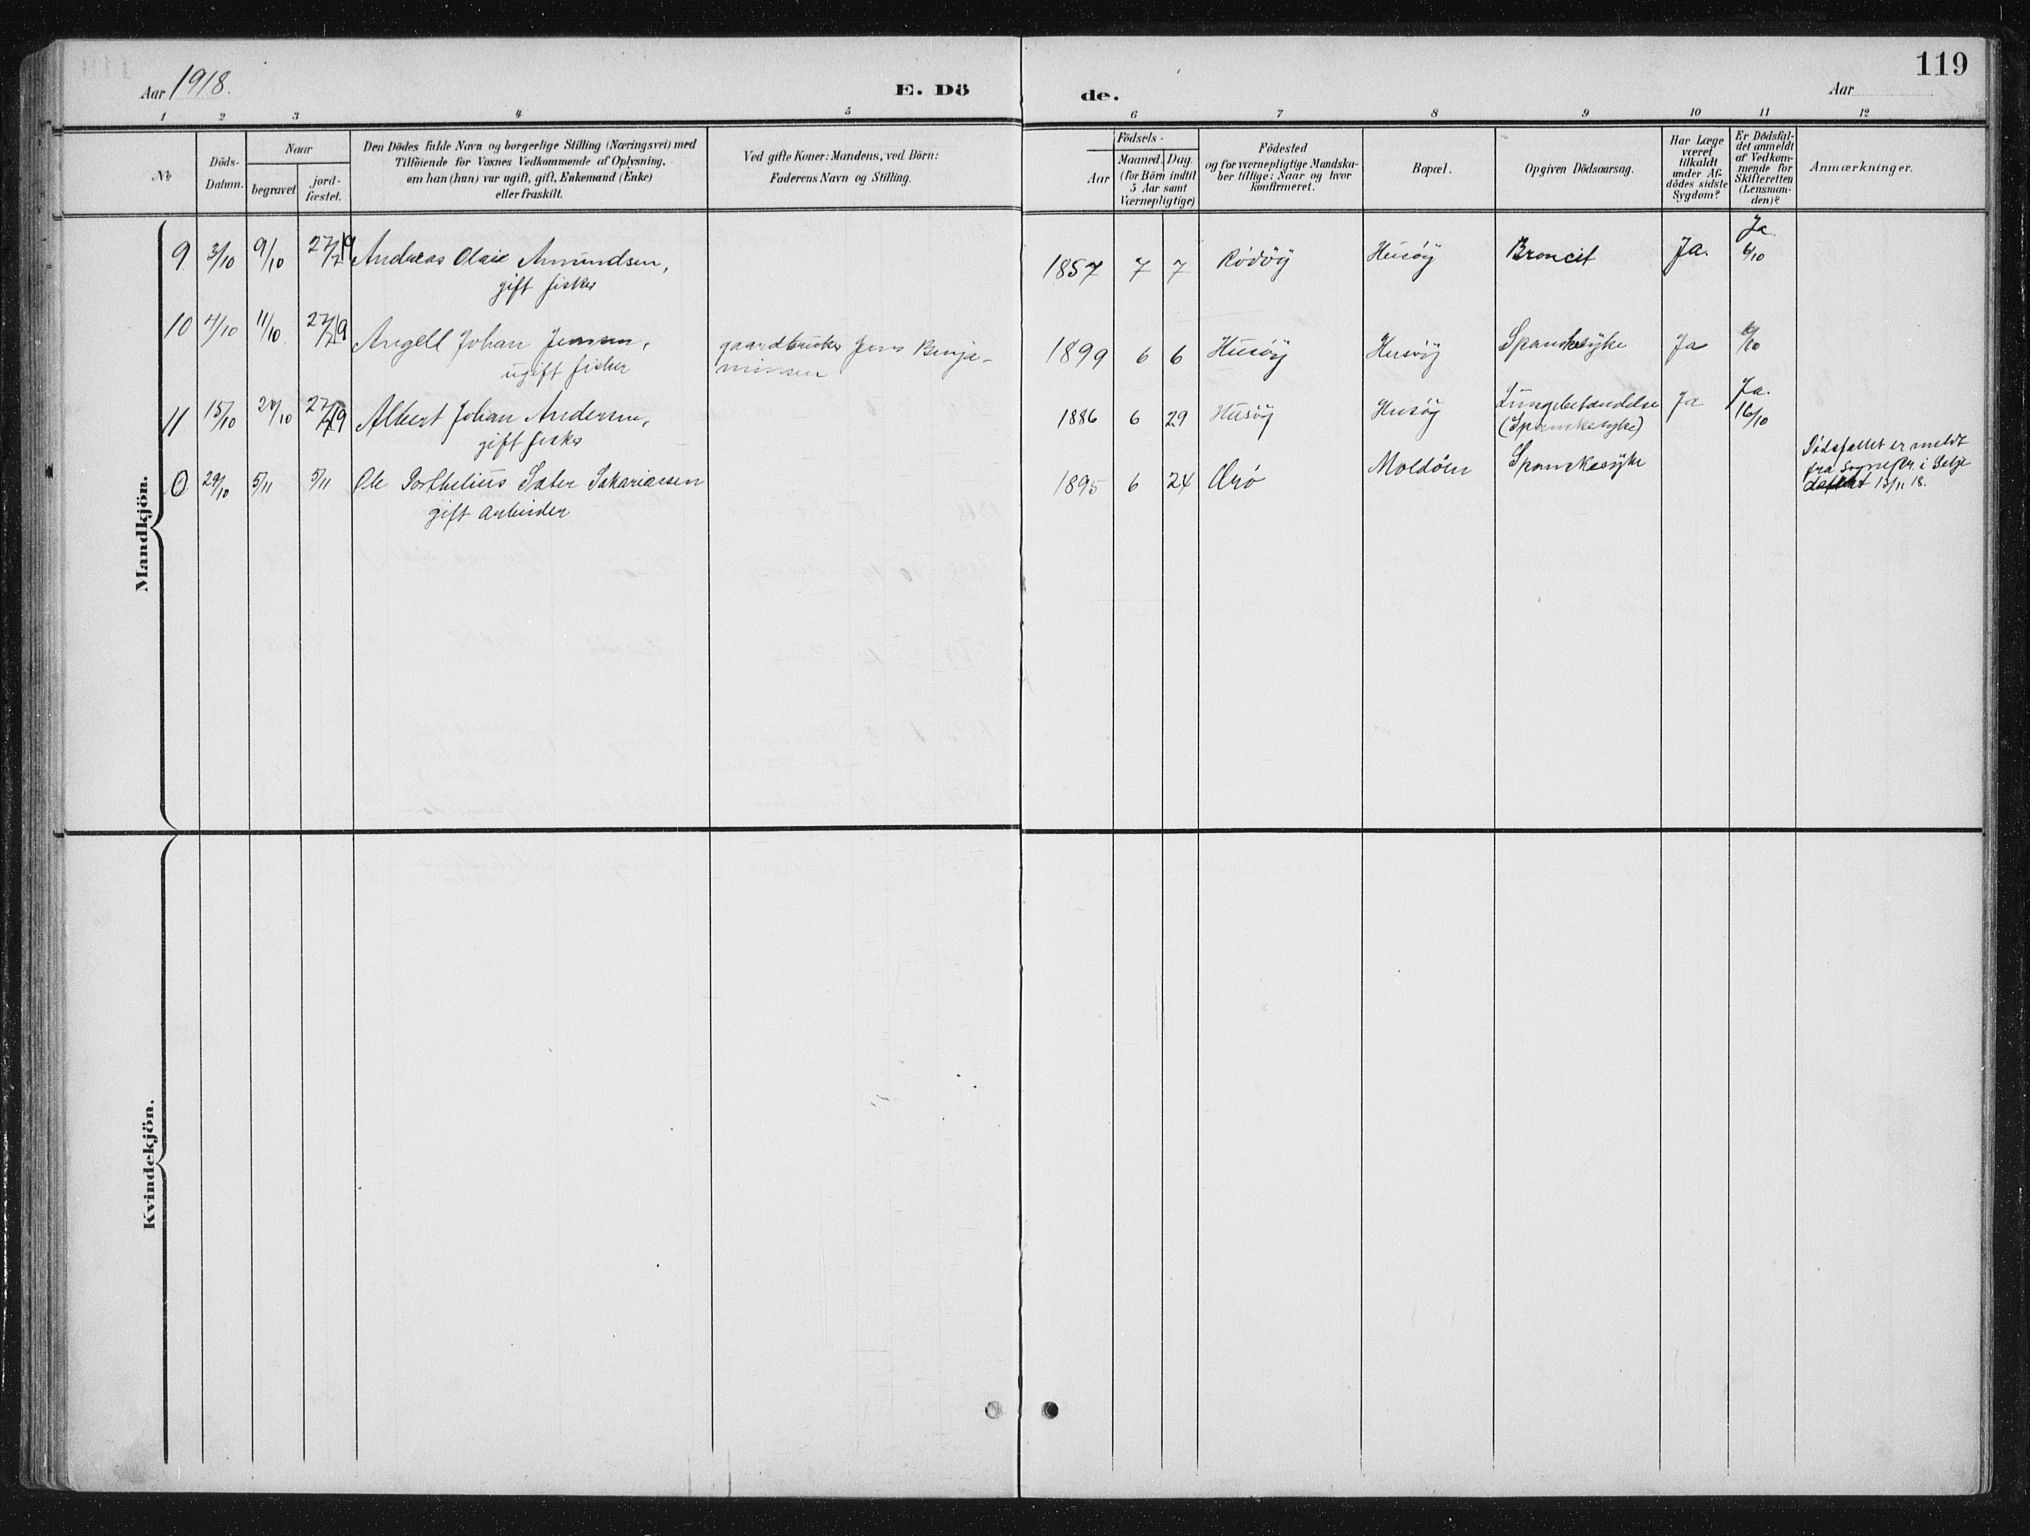 119
Aar 1918.
E. Dö
de.
Aar
1 2 3 4 5 6 7 8 9 10 11 12
№
Döds-
Datum.
Naar
begravet
jord-
fæstet.
Den Dödes fulde Navn og borgerlige Stilling (Næringsvei) med
Tilföiende for Voxnes Vedkommende af Oplysning,
om han (hun) var ugift, gift, Enkemand (Enke)
eller fraskilt.
Ved gifte Koner: Mandens, ved Börn:
Faderens Navn og Stilling.
Födsels-
Aar
Maaned. Dag.
(for Börn indtil
5 Aar samt
Værnepligtige)
Födested
og for værnepligtige Mandska-
ber tillige: Naar og hvor
konfirmeret.
Bopæl.
Opgiven Dödsaarsag.
Har Læge
været
tilkaldt
under Af-
dödes sidste
Sygdom?
Er Dödsfal-
det anmeldt
af Vedkom-
mende for
Skifteretten
(Lensman-
den)?
Anmærkninger.
Mandkjön.
9 3/10 9/10 27/7 19 Andreas Olai Amundsen,
gift fisker
1857 7 7 Rødøy Husøy Broncit Ja. Ja.
6/10
10 4/10 11/10 27/7 19 Angell Johan Jensen,
ugift fisker
gaardbruker Jens Benja-
minsen
1899 6 6 Husøy Husøy Spanskesyke Ja
11 15/10 24/10 27/7 19 Albert Johan Andersen,
gift fisker
1886 6 29 Husøy Husøy Lungebetændelse
(Spanskesyke)
Ja Ja.
16/10
0 29/10 5/11 5/11 Ole Sater Sakariassen
gift arbeider
1895 6 24 Moldøen Spanskesyke
Dødsfallet er meldt
fra Sognepr. i Selje
13/11 18.
Kvindekjön.